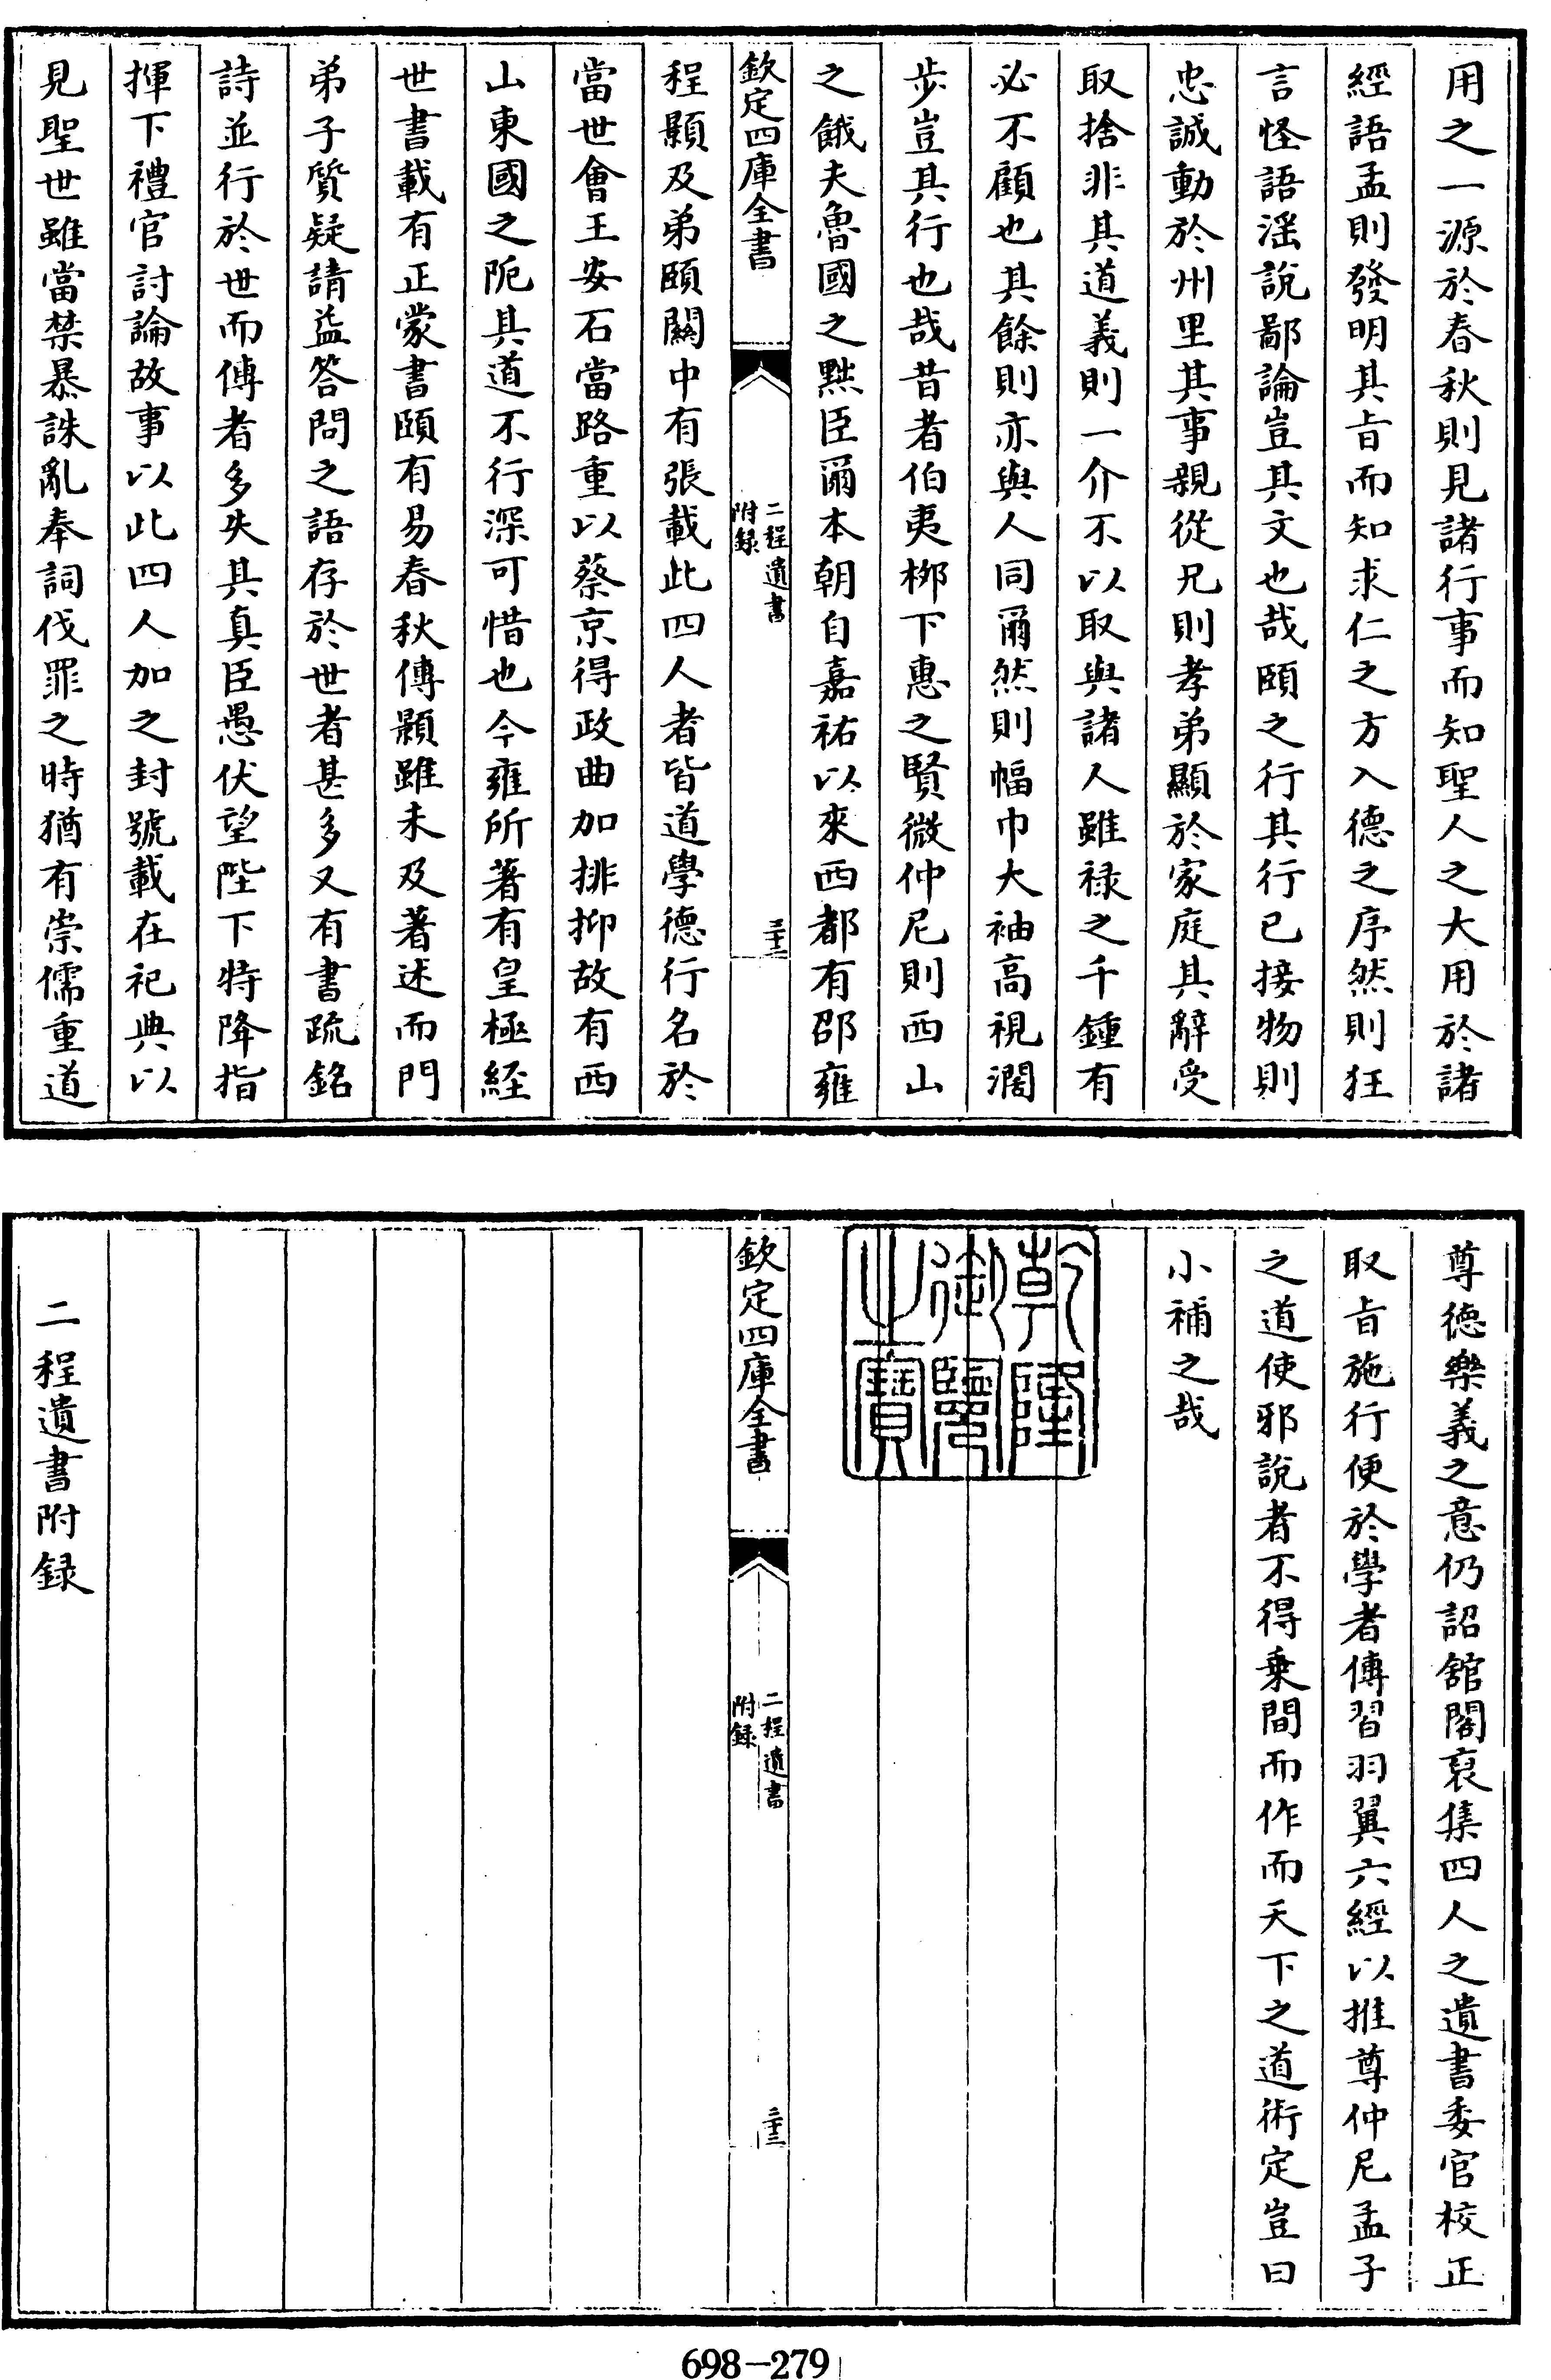 用之一源於春秋則見諸行事而知聖人之大用於諸
經語孟則發明其㫖而知求仁之方入德之序然則狂
言怪語淫説鄙論豈其文也哉頤之行其行已接物則
忠誠動於州里其事親從兄則孝弟顯於家庭其辭受
取捨非其道義則一介不以取與諸人雖禄之千鍾有
必不顧也其餘則亦與人同爾然則幅巾大袖高視濶
步豈其行也哉昔者伯夷栁下惠之賢微仲尼則西山
之餓夫魯國之黜臣爾本朝自嘉祐以來西都有邵雍
欽定四庫全書
二程遺書
附録
三十二
程顥及弟頤關中有張載此四人者皆道學德行名於
當世㑹王安石當路重以蔡京得政曲加排抑故有西
山東國之阨其道不行深可惜也今雍所著有皇極經
世書載有正蒙書頤有易春秋傳顥雖未及著述而門
弟子質疑請益答問之語存於世者甚多又有書疏銘
詩並行於世而傳者多失其真臣愚伏望陛下特降指
揮下禮官討論故事以此四人加之封號載在祀典以
見聖世雖當禁暴誅亂奉詞伐罪之時猶有崇儒重道
尊德樂義之意仍詔舘閣裒集四人之遺書委官校正
取㫖施行便於學者傳習羽翼六經以推尊仲尼孟子
之道使邪説者不得乗間而作而天下之道術定豈曰
小補之哉
乾隆
御覽
之寶
欽定四庫全書
二程遺書
附録
三十三
二程遺書附録
698-279